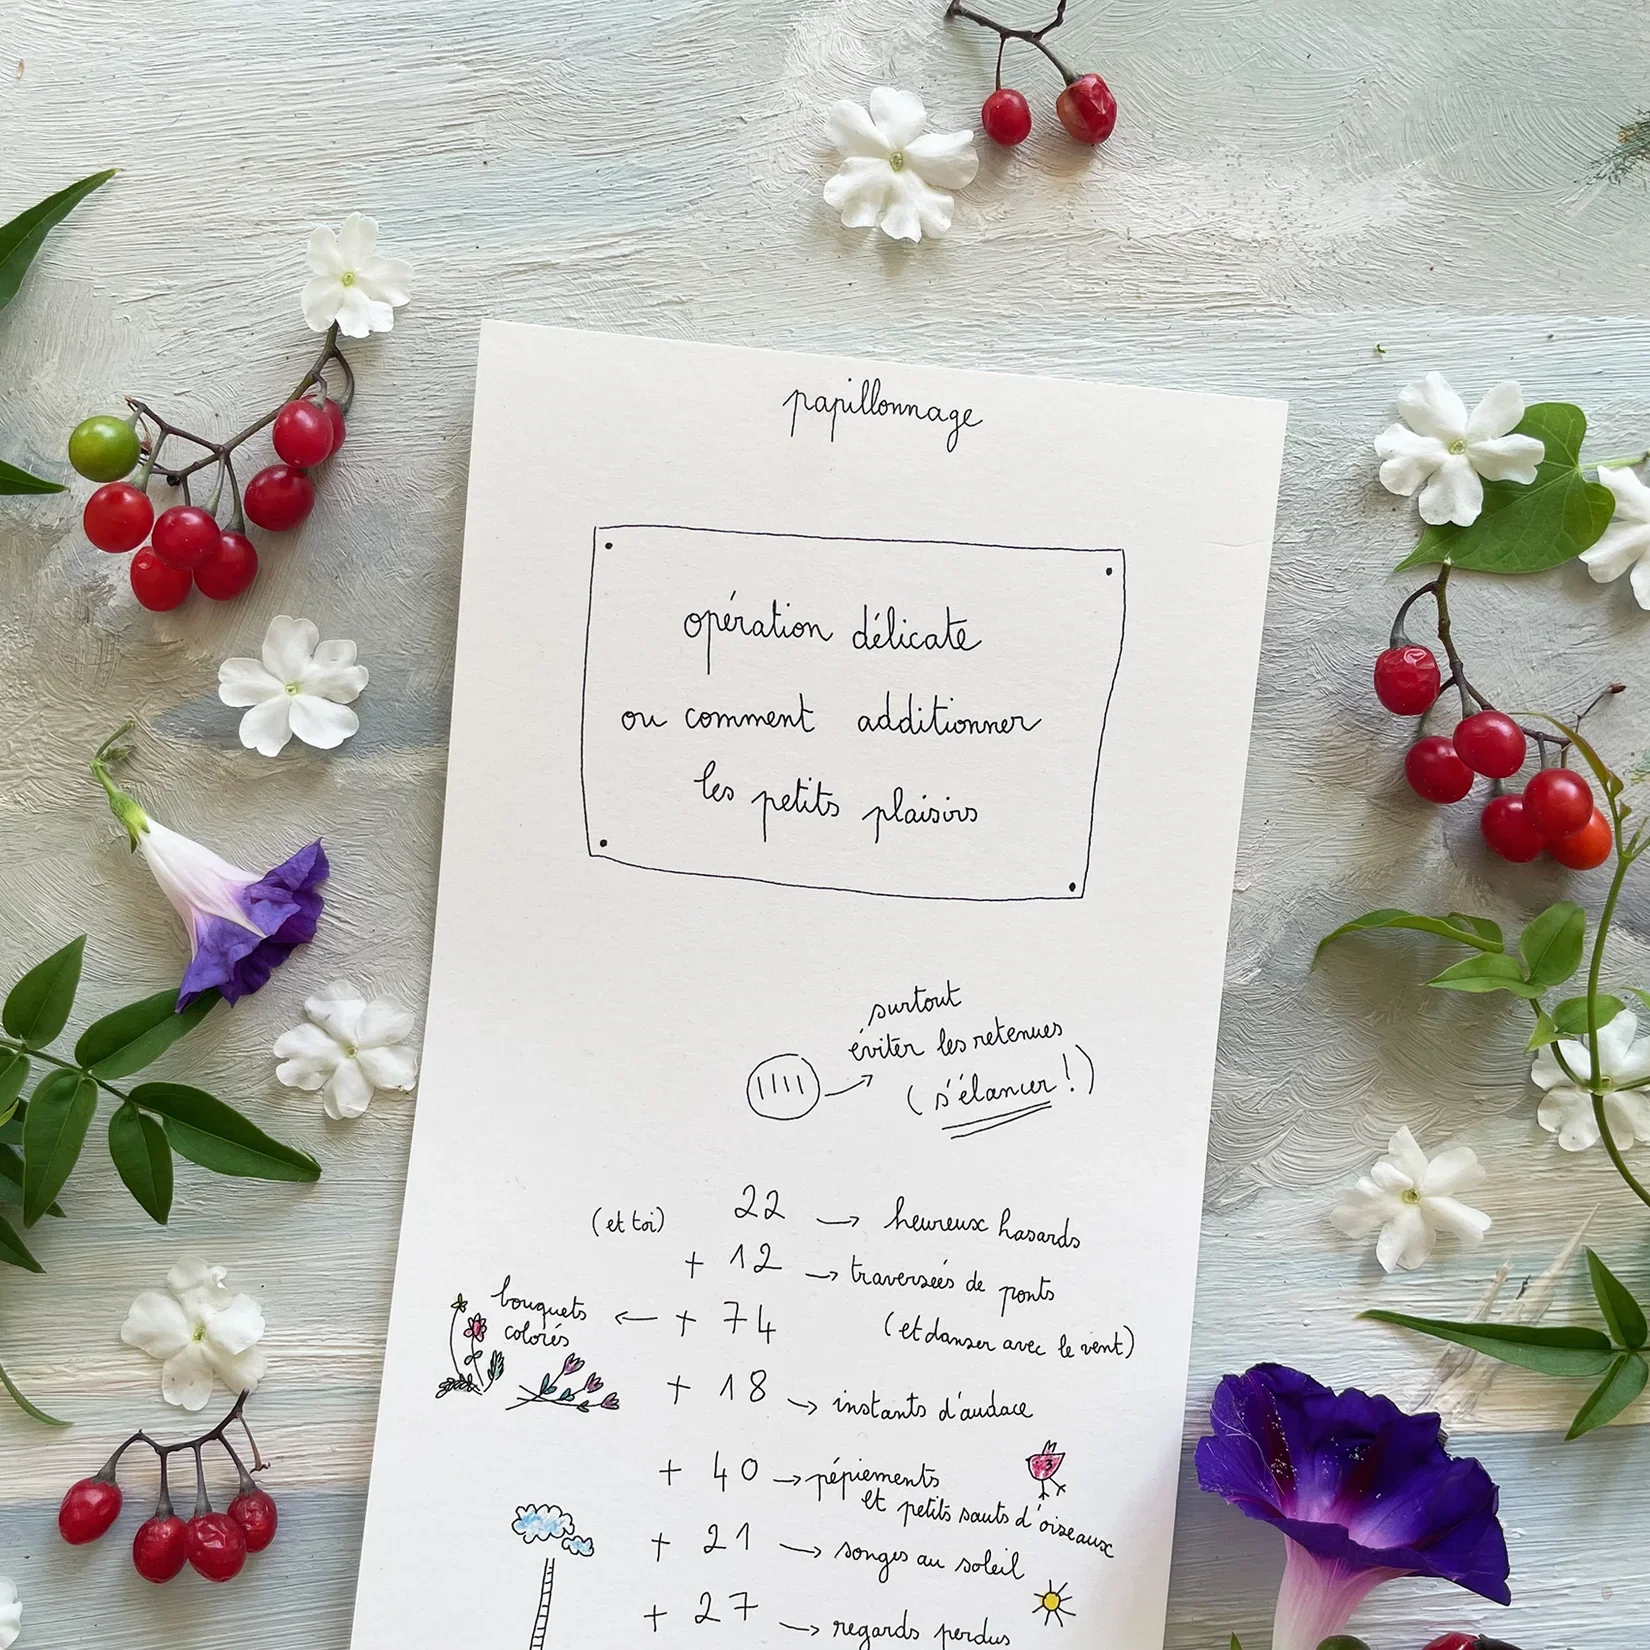 papillonnage
opération délicate
ou comment additionner
les petits plaisirs
surtout
éviter les retenues
(s'élancer !)
(et toi) 22 → heureux hasards
+ 12 → traversées de ponts
(et danser avec le vent)
bouquets
colorés ← + 74
+ 18 → instants d'audace
+ 40 → pépiements
et petits sauts d'oiseaux
+ 21 → songes au soleil
+ 27 → regards perdus